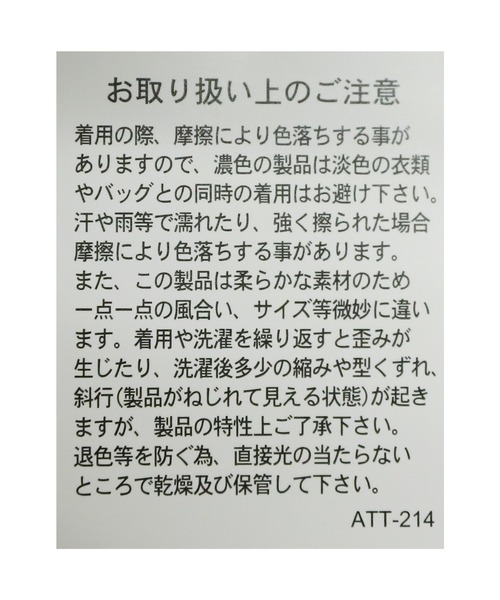 お取り扱い上のご注意
着用の際、摩擦により色落ちする事が
ありますので、濃色の製品は淡色の衣類
やバッグとの同時の着用はお避け下さい。
汗や雨等で濡れたり、強く擦られた場合
摩擦により色落ちする事があります。
また、この製品は柔らかな素材のため
一点一点の風合い、サイズ等微妙に違い
ます。着用や洗濯を繰り返すと歪みが
生じたり、洗濯後多少の縮みや型くずれ、
斜行(製品がねじれて見える状態)が起き
ますが、製品の特性上ご了承下さい。
退色等を防ぐ為、直接光の当たらない
ところで乾燥及び保管して下さい。
ATT-214